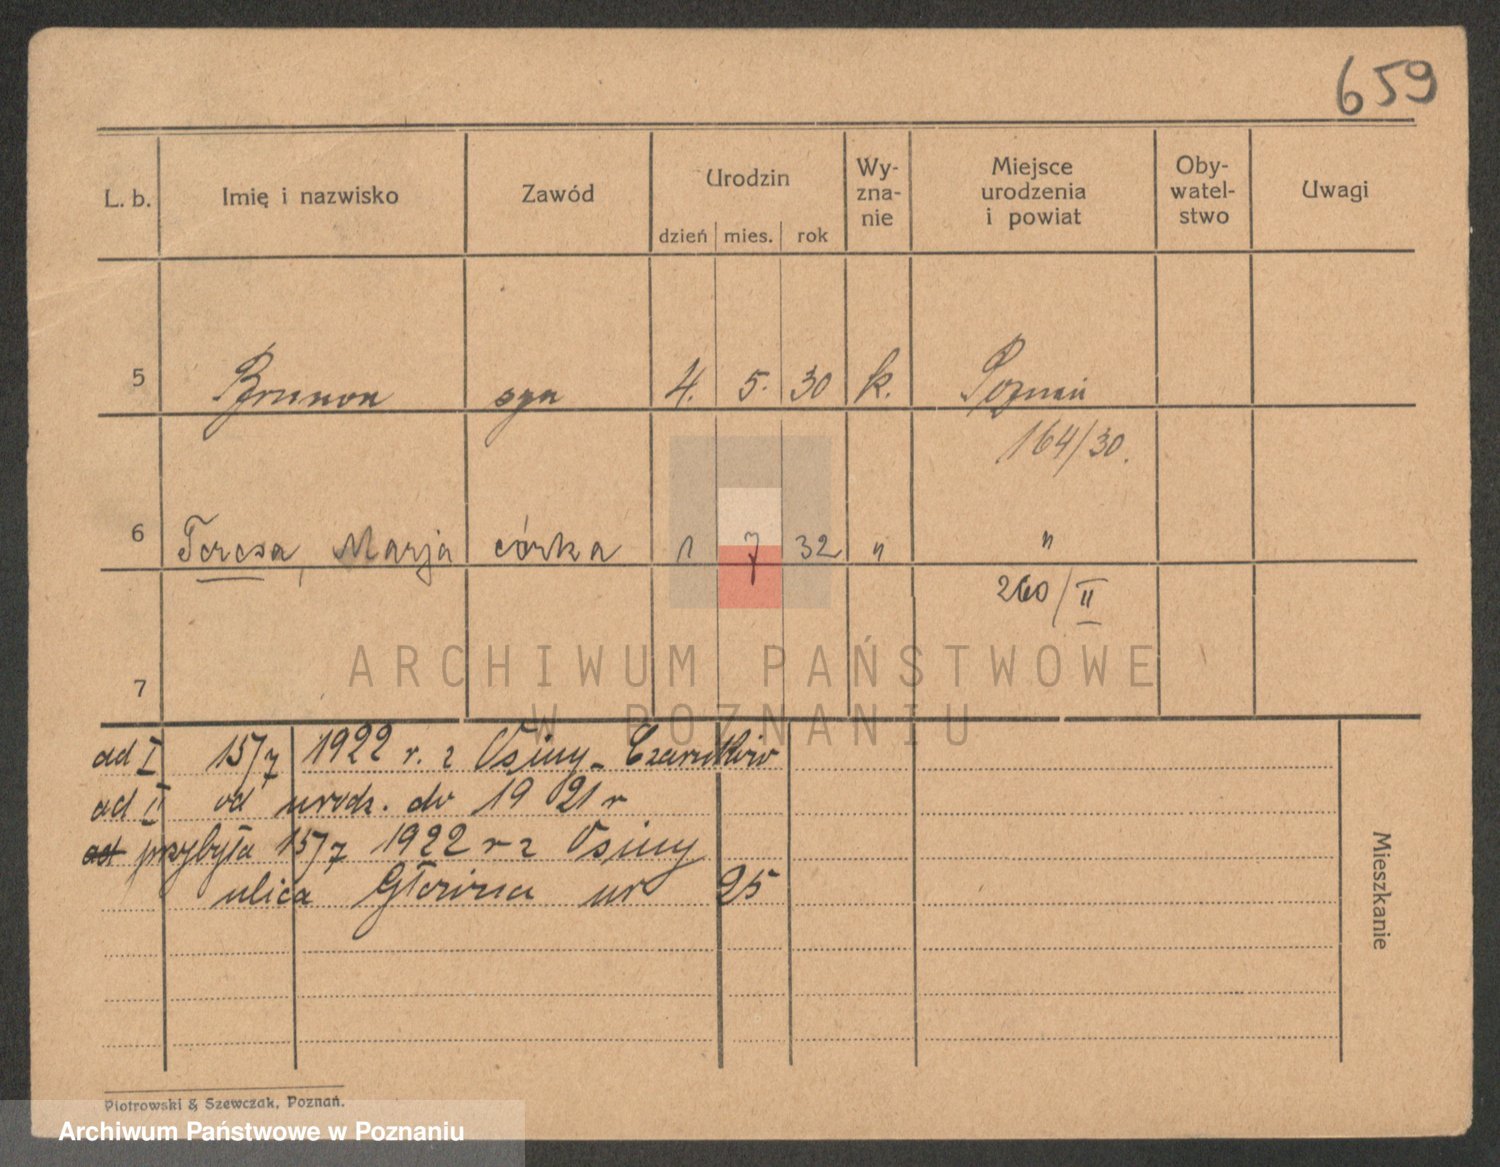 659
L. b. Imię i nazwisko Zawód Urodzin dzień mies. rok Wy-zna-nie Miejsce urodzenia i powiat Oby-watel-stwo Uwagi
5 Brunon syn 4. 5. 30 k. Poznań
164/30.
6 Teresa, Marja córka 1 7 32 " "
260/II
7
ARCHIWUM PAŃSTWOWE
W POZNANIU
ad I 15/7 1922 r. z Osiny - Czarnków
ad II od urodz. do 1921 r
ad przybyła 15/7 1922 r z Osiny
ulica Główna nr 25
Mieszkanie
Piotrowski & Szewczak, Poznań.
Archiwum Państwowe w Poznaniu